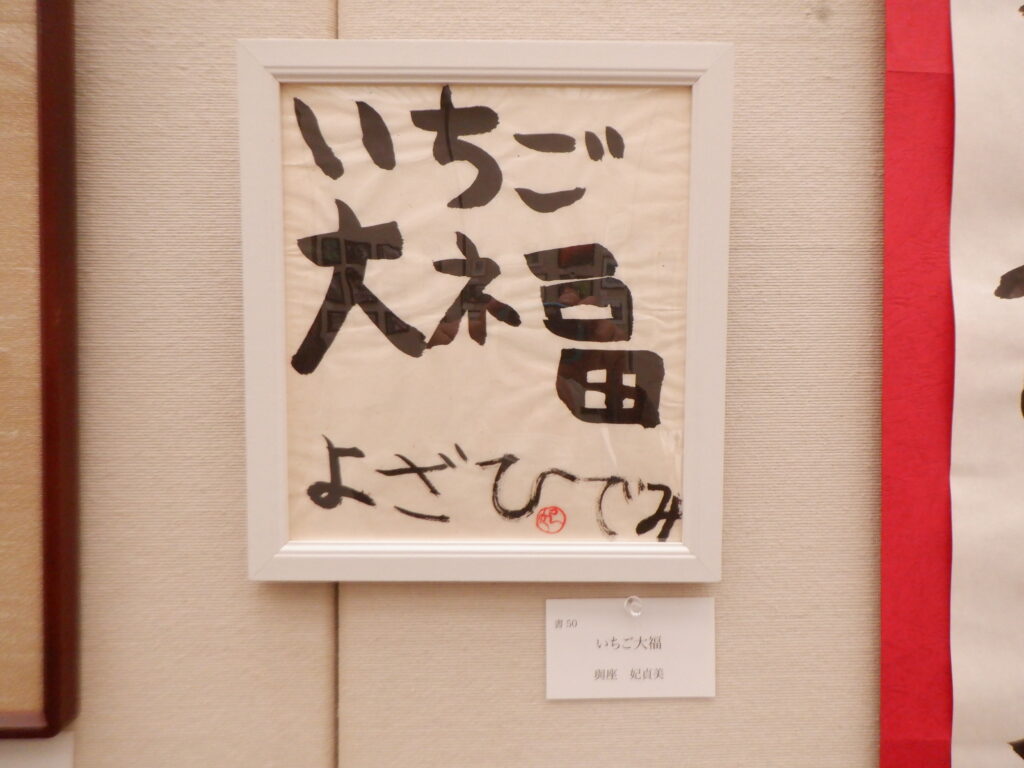 いちご
大福
よざひでみ
書50
いちご大福
座 妃貞美